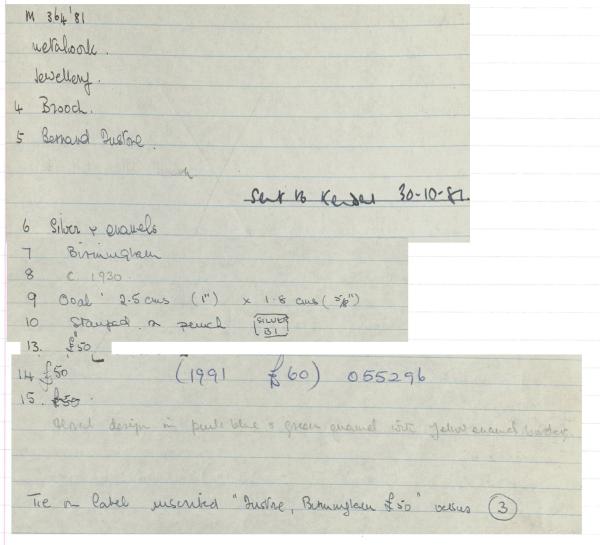 M 364'81
Metalwork.
Jewellery.
4 Brooch.
5 Bernard Instone.
Sent to Kendal 30-10-81
6 Silver & enamels
7 Birmingham
8 c. 1930
9 Oval: 2.5 cms (1") x 1.8 cms (5/8")
10 Stamped on pin SILVER BI
13. £50
14 £50 (1991 £60) 055296
15. £50.
design in blue & green enamel with yellow enamel border.
Tie on label inscribed "Instone, Birmingham £50" versus 3